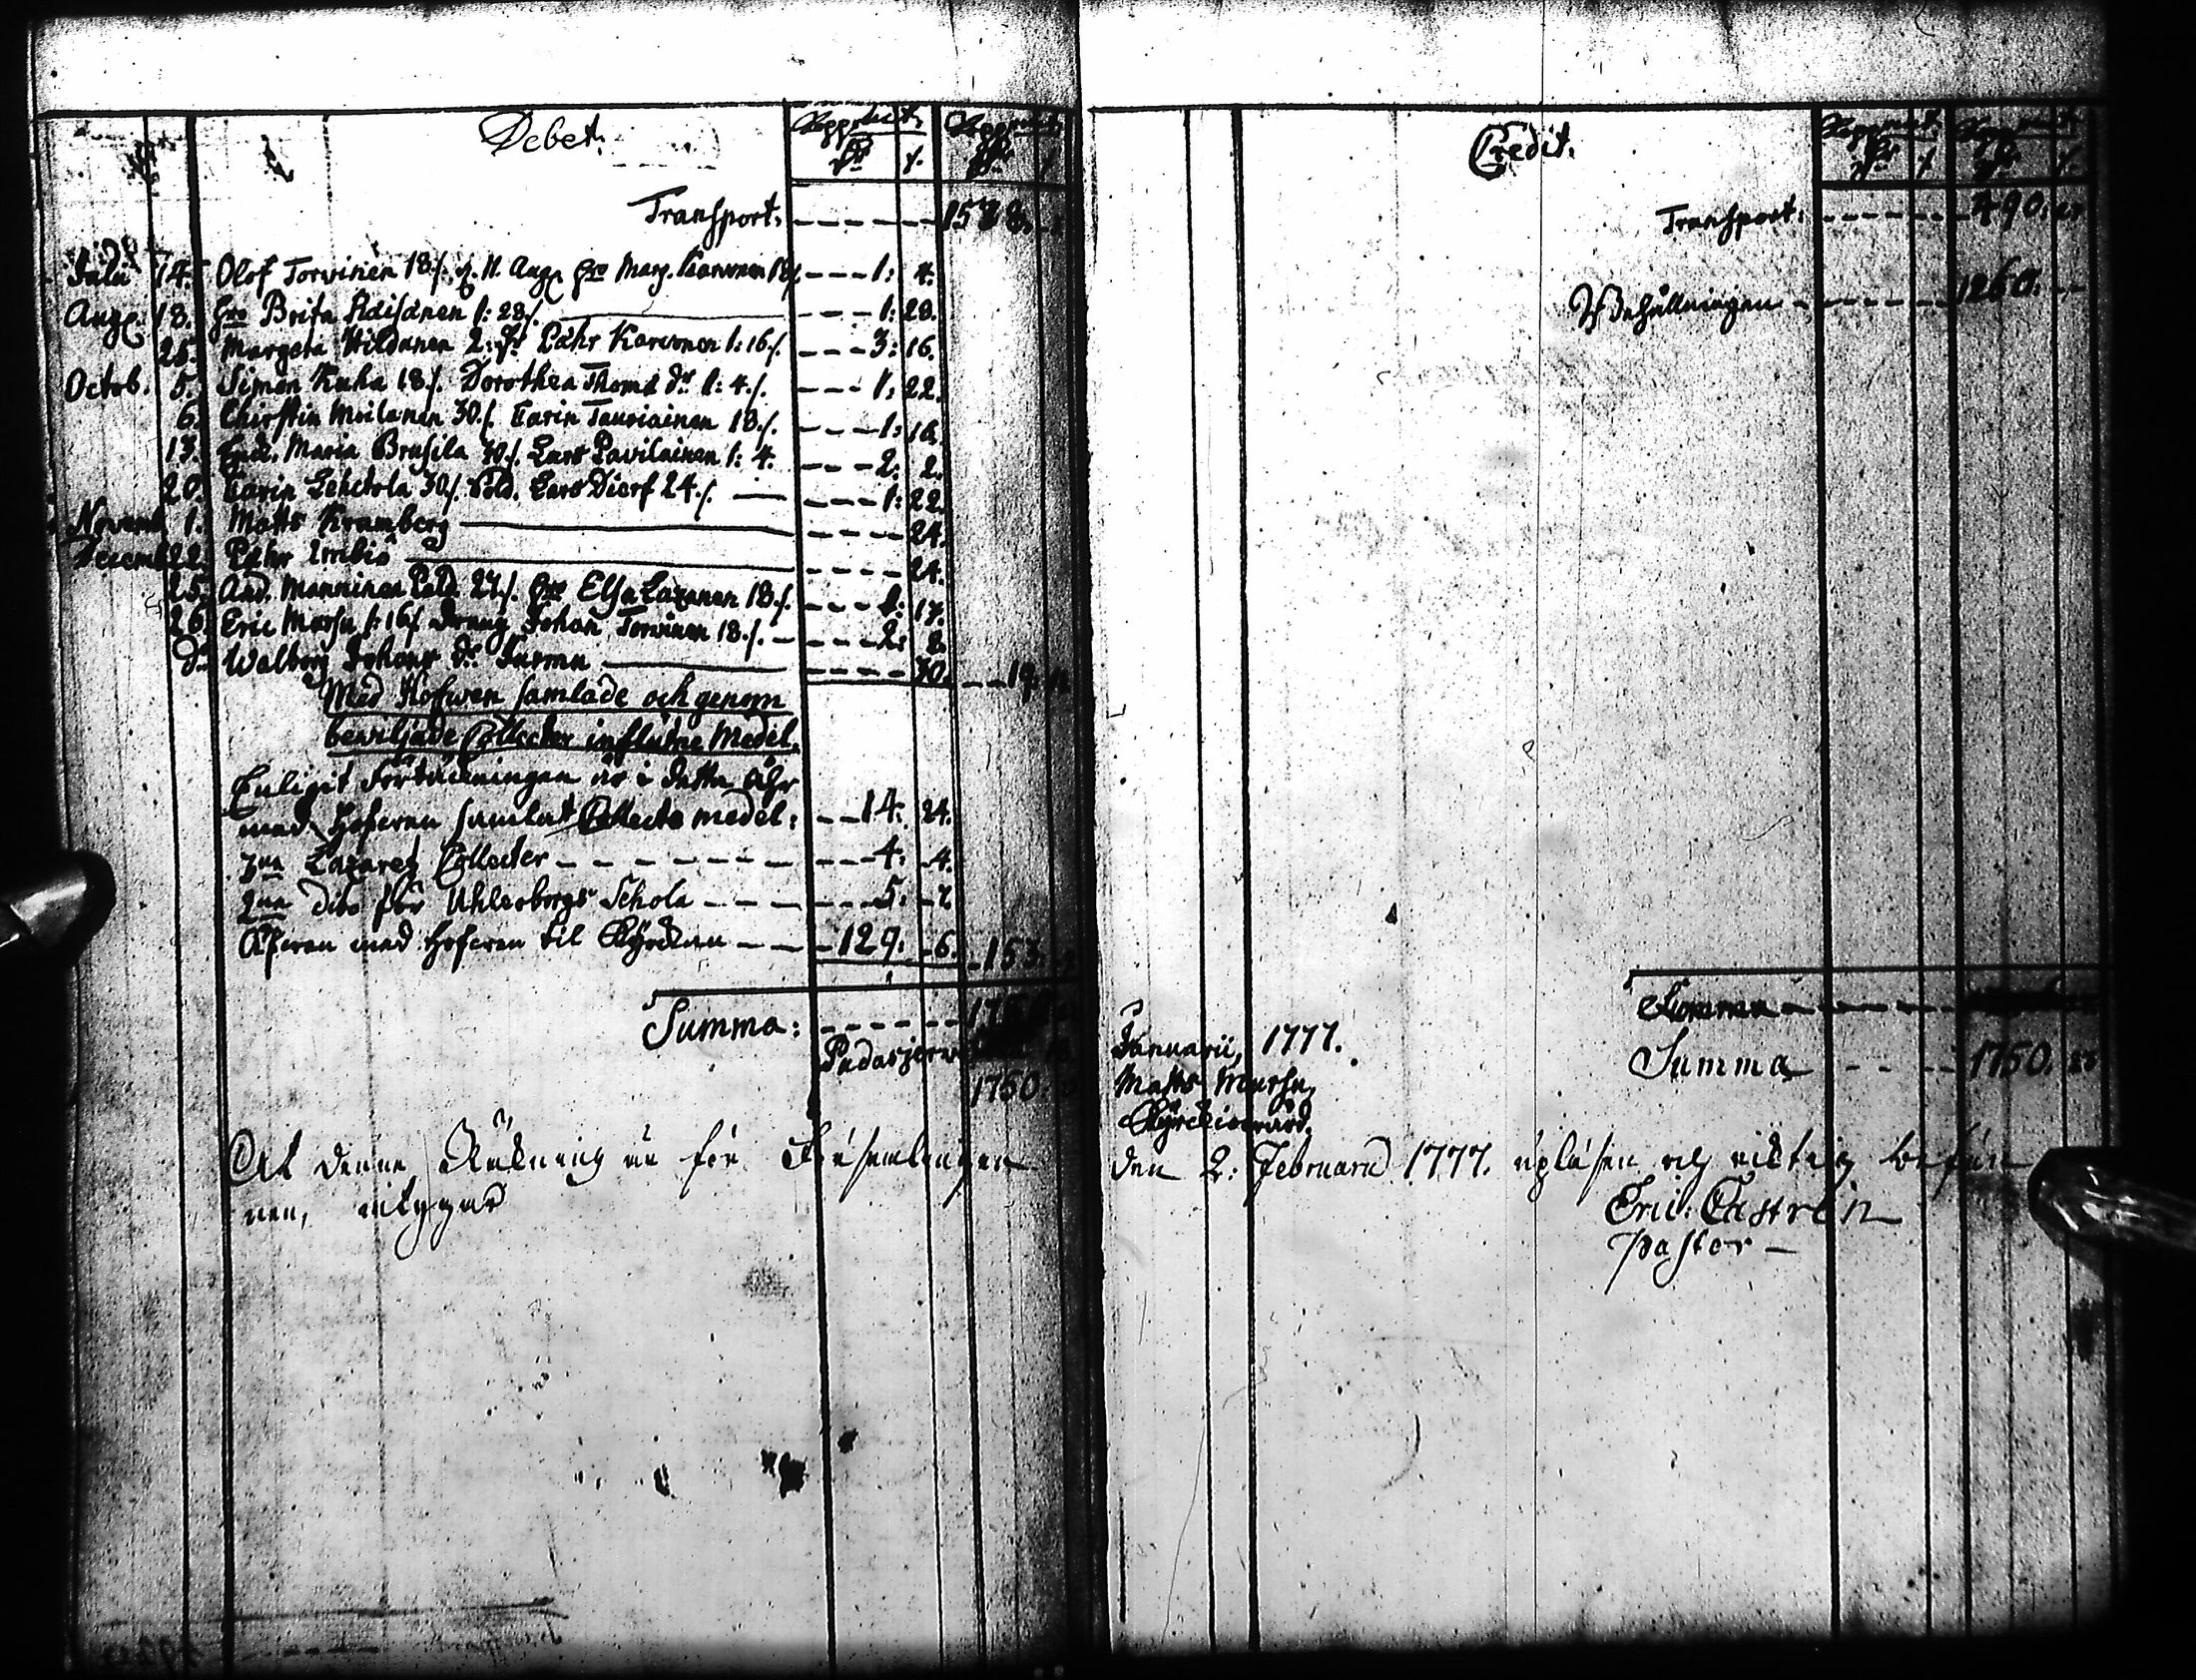 Debet.
Kopp.mt. Kopp.mt.
Transport. 1578.
Julii 14. Olof Torvinen 18/. d. 11. Aug. Hro Marg. Karvonen 18/. 1: 4.
Aug. 18. Hro Brita Räisänen 1: 28/. 1: 28.
25. Margeta Hildunen 2: Pähr Karvonen 1: 16/. 3: 16.
Octob. 5. Simon Kuha 18/. Dorothea Thoms dr 1: 4/. 1: 22.
6. Chirstin Moilanen 30/. Carin Tauriainen 18/. 1: 16.
13. Maria Brusila 30/. Lars Pavilainen 1: 4. 2: 2.
20. Carin Lehtola 30/. Sold. Lars Dierf 24/. 1: 22.
Novemb. 1. Matts Kramberg 24.
Decemb. 22. Pähr 24.
25. And. Manninen Sold. 27/. Hro Elsa Lazanen 18/. 1: 17.
26. Eric Mursu 1: 16/ dräng Johan Torvinen 18/. 2: 2.
do Walborg Johans dr Jurmu 30. 19.
Med Hofwen samlade och genom
bewiljade Collecter influtne Medel.
Enligit Förtekningen är i detta åhr
med Hofwen samlat Collecte medel: 14: 24.
3ne Lazarez Collecter 4: 4.
2ne dito för Uhleåborgs Schola 5:
Äfwen med Hofwen til Kyrckan 129: 6. 153.
Summa:
Pudasjerwi
1750.
At denne Räkning är för Församlingen
nen, intygar
Credit.
Transport: 490.
Behållningen 1260.
Summa
Januarii, 1777.
Summa 1750.
Matts Mursu,
Kyrckiowärd.
den 2: Februarii 1777. upläsen och riktig befun
Eric Castrén
Pastor